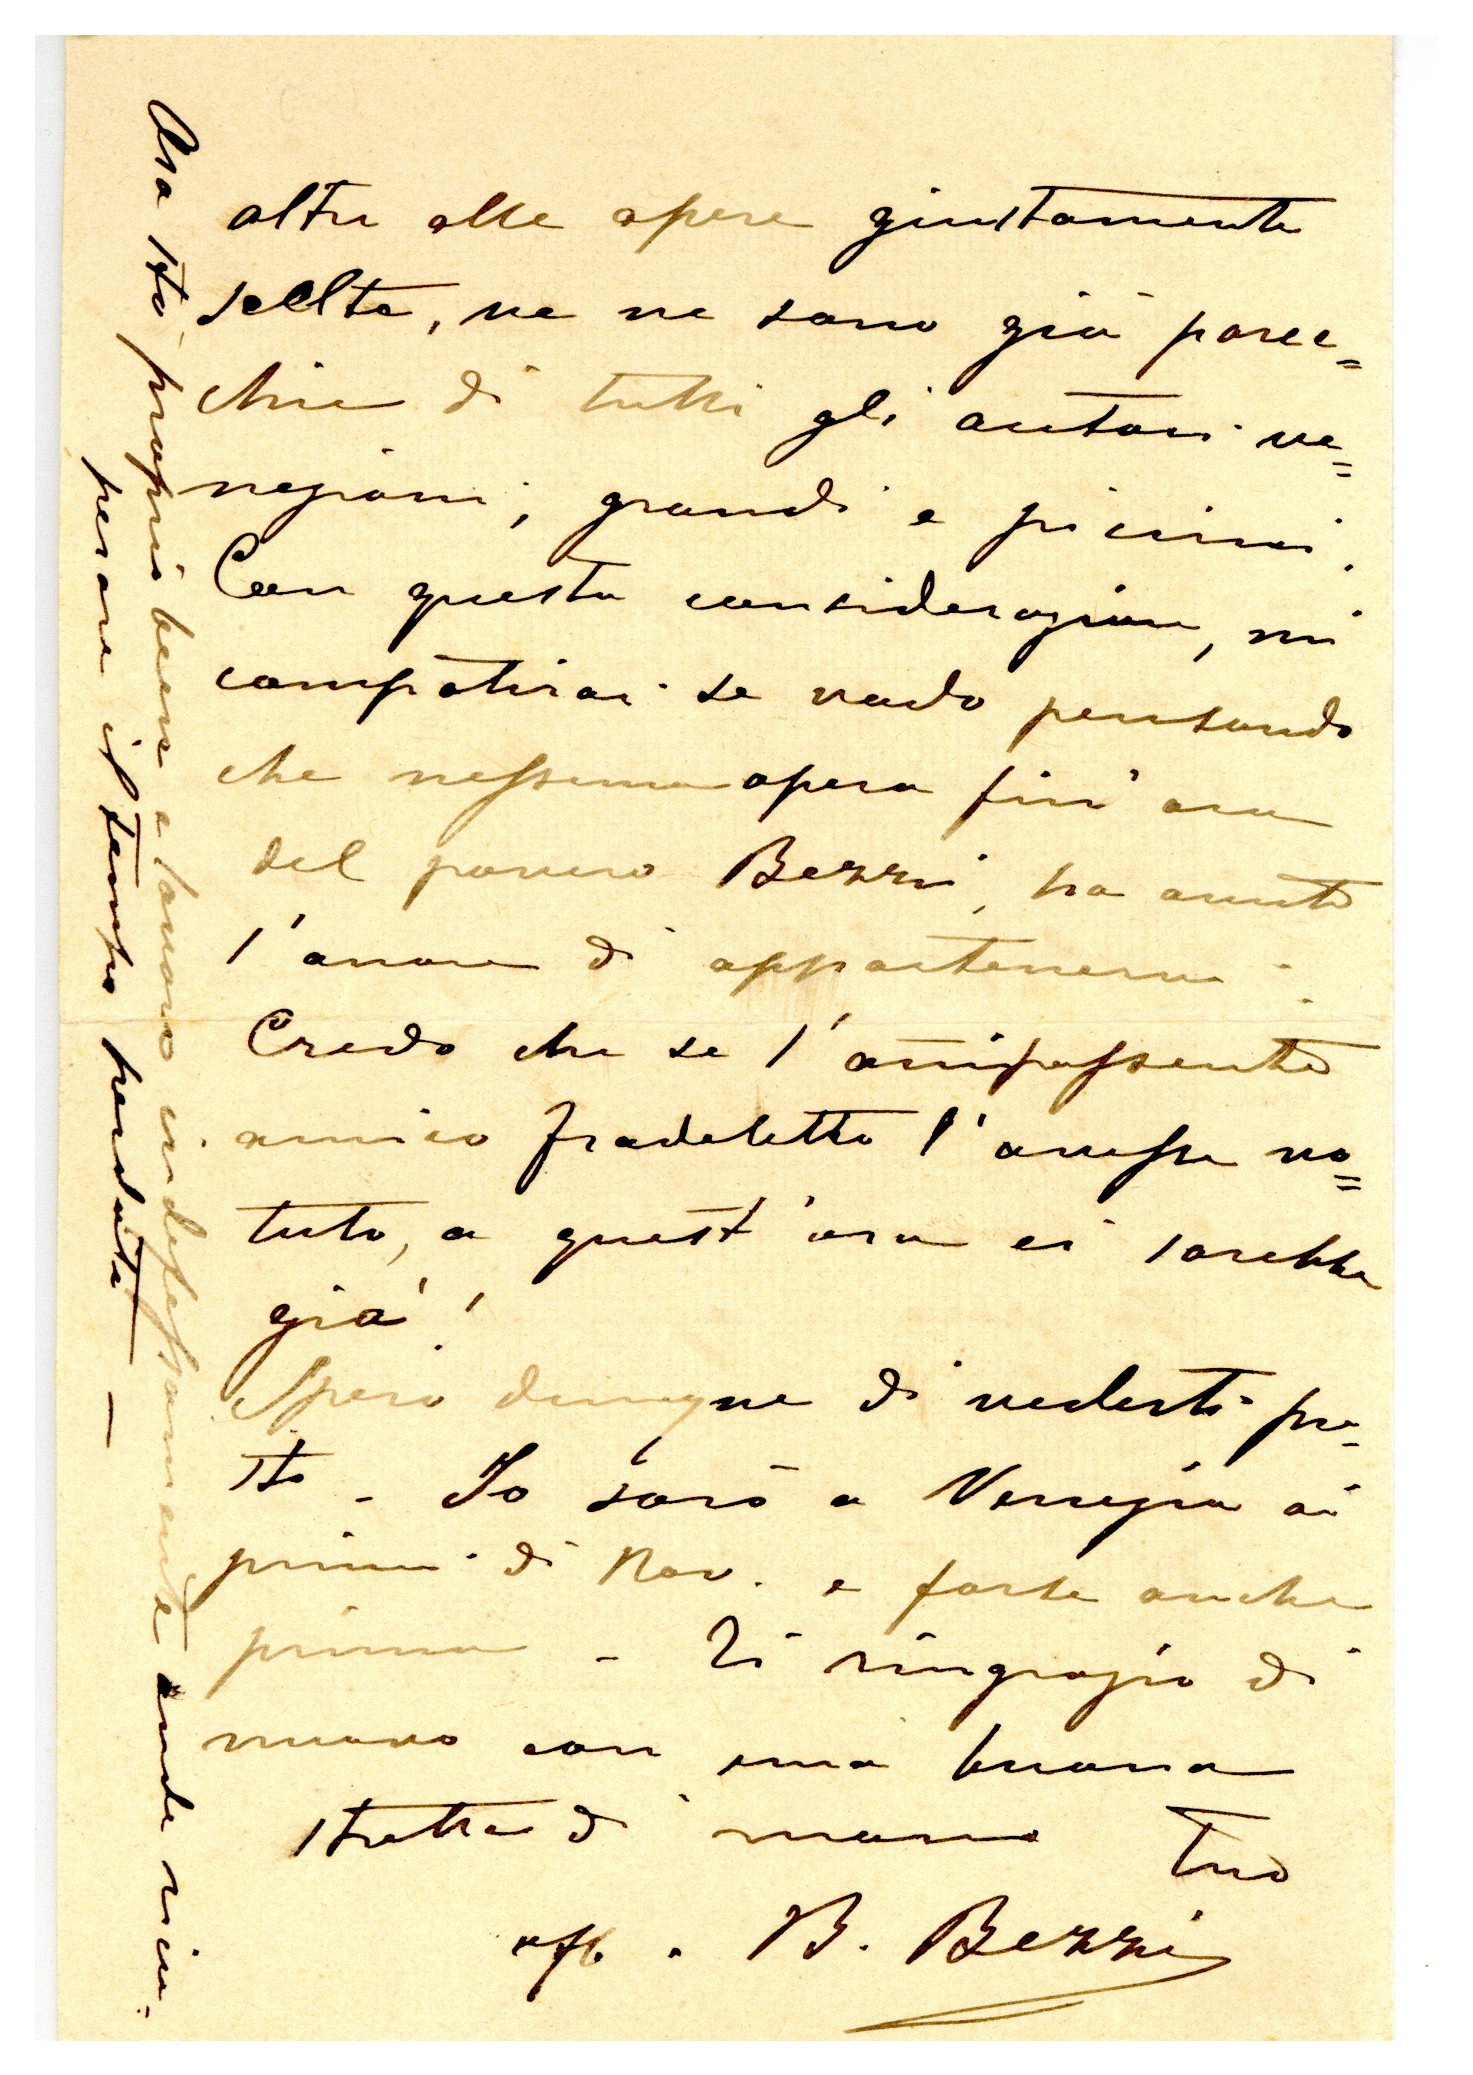 altre alle opere giustamente
scelte, ve ne sono già parec=
chie di tutti gli autori ve=
neziani, grandi e piccini.
Con questa considerazione, mi
compatirai se vado pensando
che nessuna opera fin'ora
del povero Bezzi, ha avuto
l'onore di appartenervi.
Credo che se l'onnipossente
amico Fradeletto l'avesse vo=
luto, a quest'ora ci sarebbe
già!
Spero dunque di vederti pre=
sto - Io sarò a Venezia ai
primi di Nov. e forse anche
prima - Ti ringrazio di
nuovo con una buona
stretta di mano Tuo
aff. B. Bezzi
Ora sto proprio bene e lavoro indefessamente onde ricu=
perare il tempo perduto -